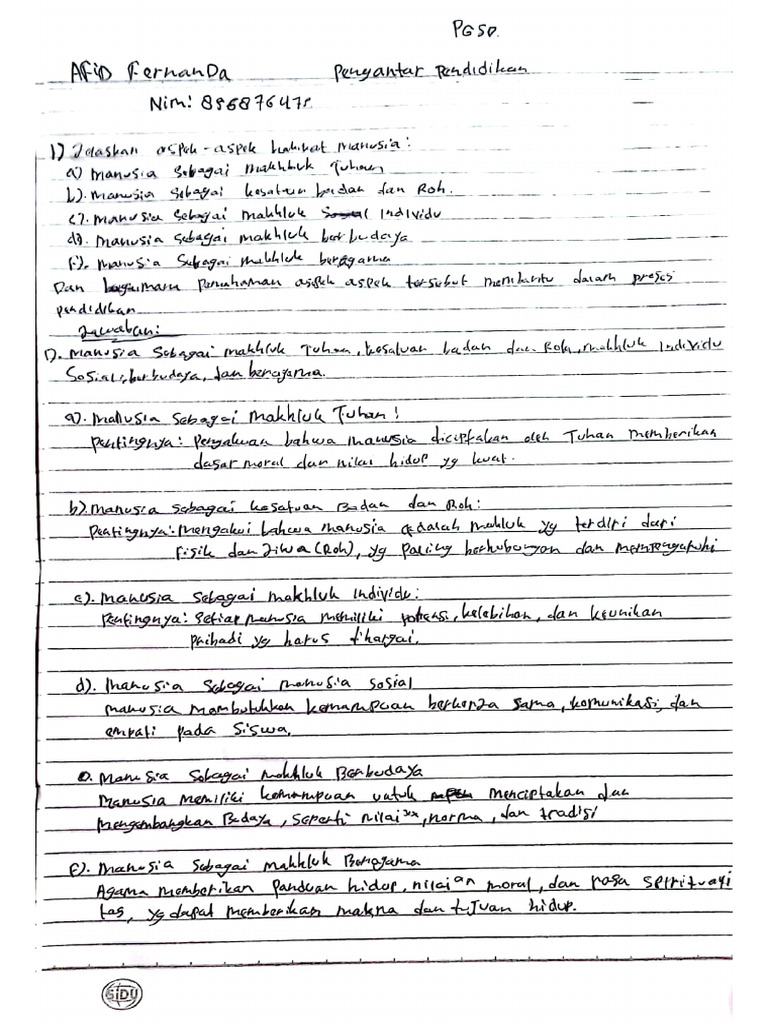 PGSD.
AFiD FernanDa Pengantar Pendidikan
Nim: 856876471
1) Jelaskan aspek-aspek hakikat manusia:
a) Manusia sebagai makhluk Tuhan
b). Manusia sebagai kesatuan badan dan Roh.
c). Manusia sebagai makhluk Individu
d). Manusia sebagai makhluk berbudaya
f). Manusia sebagai makhluk beragama
Dan bagaimana pemahaman aspek aspek tersebut membantu dalam proses
pendidikan
Jawaban:
1). Manusia sebagai makhluk Tuhan, kesatuan badan dan Roh, makhluk Individu
Sosial, berbudaya, dan beragama.
a). Manusia sebagai makhluk Tuhan!
Pentingnya: Pengakuan bahwa manusia diciptakan oleh Tuhan memberikan
dasar moral dan nilai hidup yg kuat.
b). Manusia sebagai kesatuan Badan dan Roh:
Pentingnya: Mengakui bahwa manusia adalah makluk yg terdiri dari
fisik dan Jiwa (Roh), yg paling berhubungan dan mempengaruhi
c). Manusia sebagai makhluk Individu:
Pentingnya: Setiap manusia memiliki potensi, kelebihan, dan keunikan
pribadi yg harus dihargai.
d). Manusia sebagai manusia sosial
manusia membutuhkan kemampuan berkerja sama, komunikasi, dan
empati pada siswa.
e. Manusia sebagai makhluk Berbudaya
Manusia memiliki kemampuan untuk menciptakan dan
mengembangkan Budaya, seperti nilai, norma, dan tradisi
F). Manusia sebagai makhluk Beragama
Agama memberikan panduan hidup, nilai moral, dan rasa spirituali
tas, yg dapat memberikan makna dan tujuan hidup.
SiDU